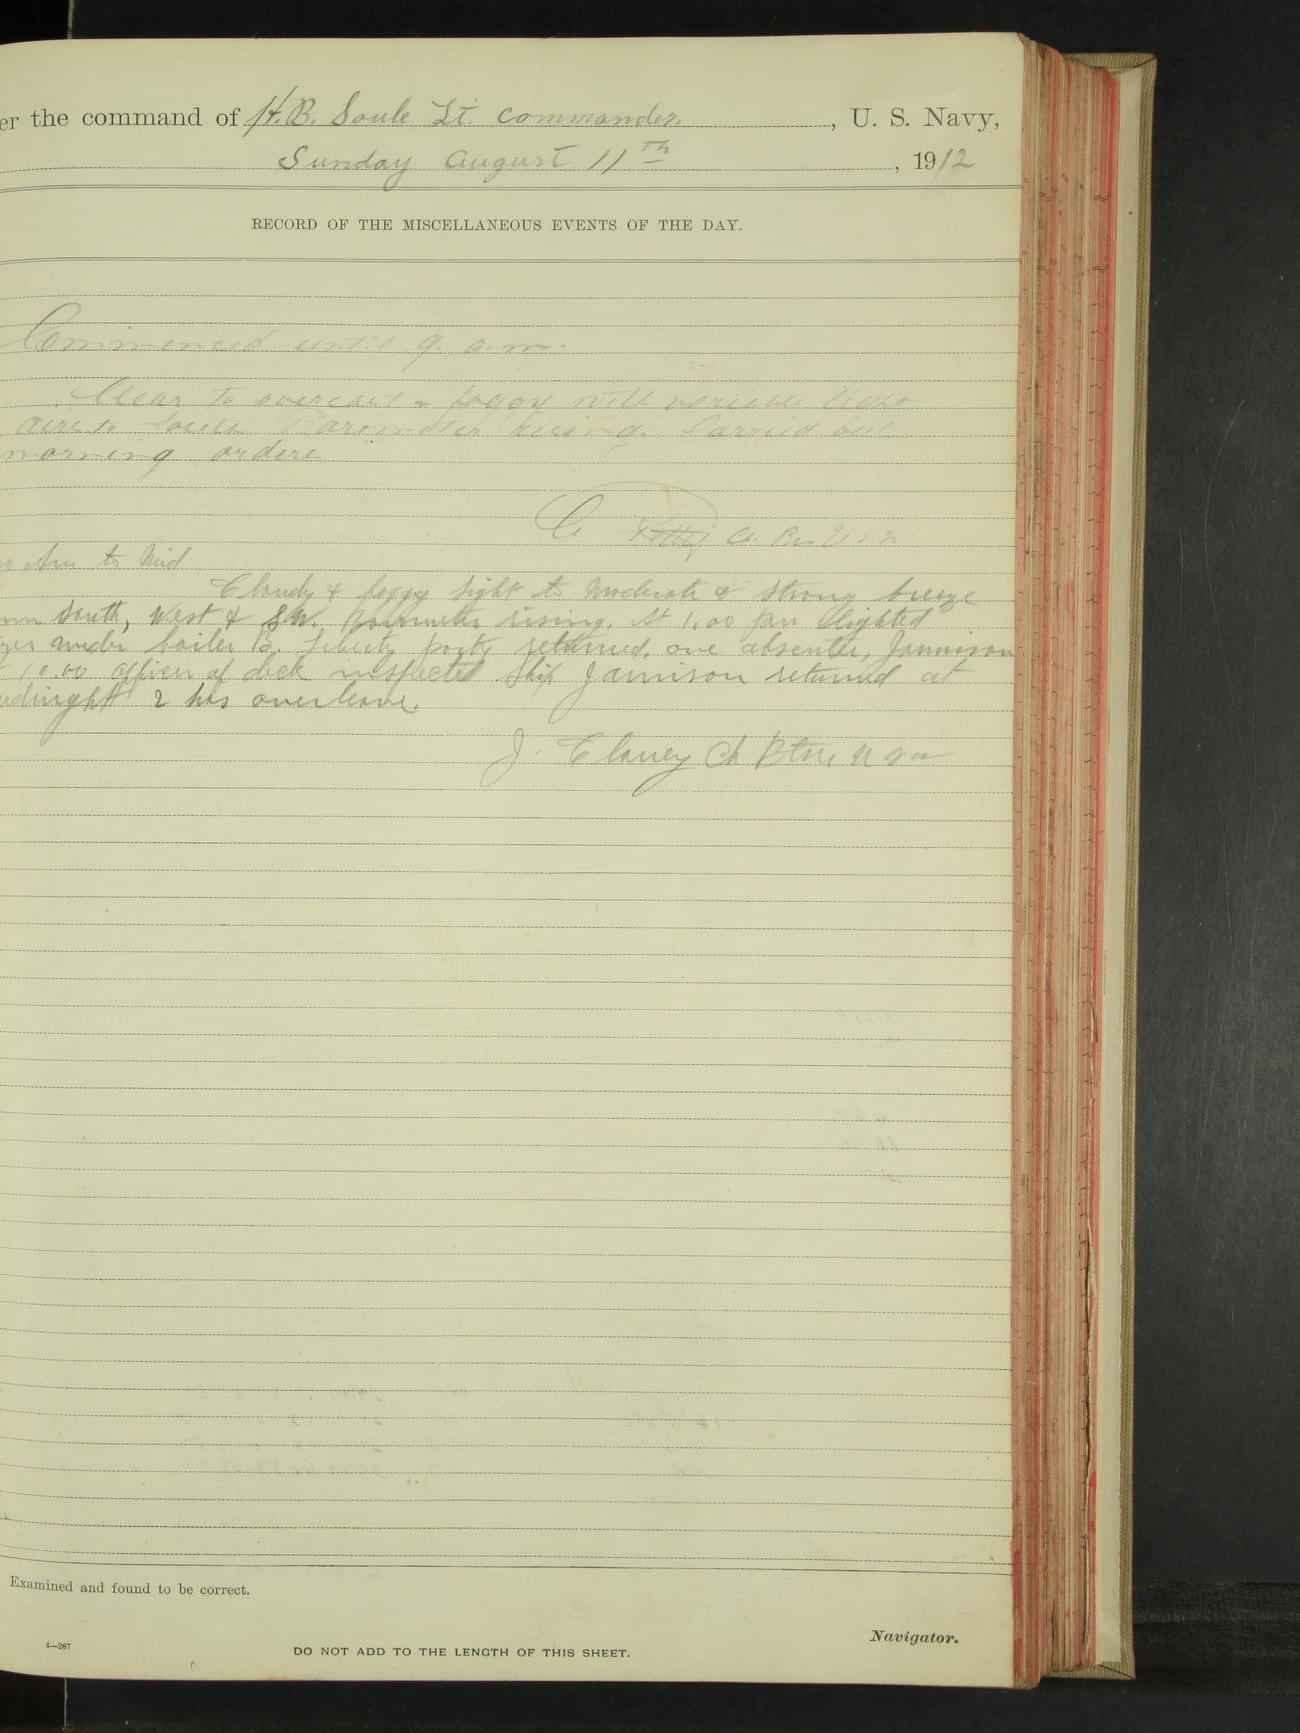 er the command of H.B. Soule Lt. Commander, U. S. Navy,
Sunday August 11th, 1912
RECORD OF THE MISCELLANEOUS EVENTS OF THE DAY.
Commenced until 9. a.m.
Clear to overcast & foggy with various light
airs to Barometer rising. Carried out
morning orders
C.
Am to Mid
Cloudy & foggy light to moderate & strong breeze
South, West & S.W. Barometer rising. At 1.00 pm lighted
under boiler B. Liberty party returned, one absentee, Jamison
10.00 officer of deck inspected ship Jamison returned at
2 hrs overleave.
J. Clancy Ch Btsn U S N
Examined and found to be correct.
Navigator.
4—287
DO NOT ADD TO THE LENGTH OF THIS SHEET.